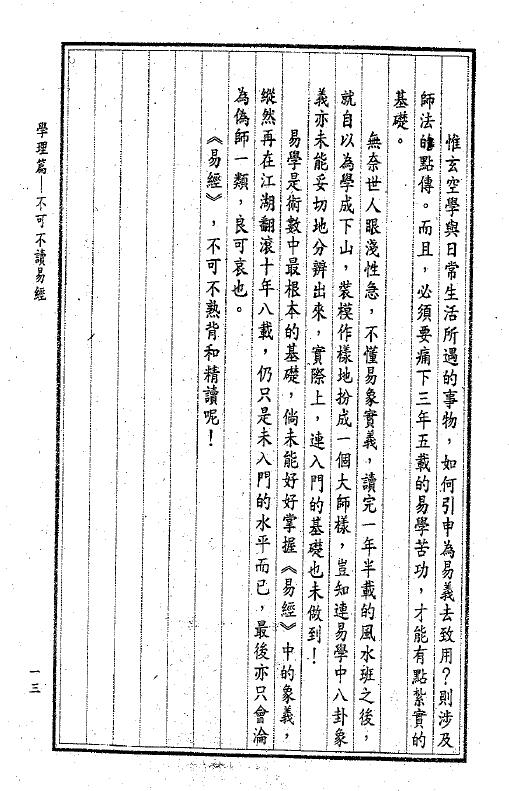 惟玄空學與日常生活所遇的事物，如何引申為易義去致用？則涉及
師法的點傳。而且，必須要痛下三年五載的易學苦功，才能有點紮實的
基礎。
無奈世人眼淺性急，不懂易象實義，讀完一年半載的風水班之後，
就自以為學成下山，裝模作樣地扮成一個大師樣，豈知連易學中八卦象
義亦未能妥切地分辨出來，實際上，連入門的基礎也未做到！
易學是術數中最根本的基礎，倘未能好好掌握《易經》中的象義，
縱然再在江湖翻滾十年八載，仍只是未入門的水平而已，最後亦只會淪
為偽師一類，良可哀也。
《易經》，不可不熟背和精讀呢！
學理篇—不可不讀易經
一三